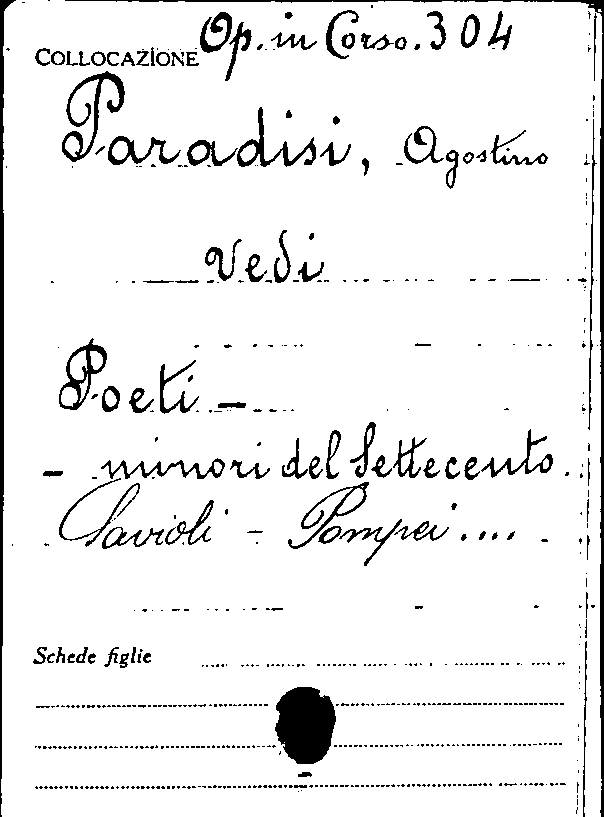 COLLOCAZIONE Op. in Corso. 304
Paradisi, Agostino
Vedi
Poeti -
- minori del Settecento.
Savioli - Pompei ....
Schede figlie